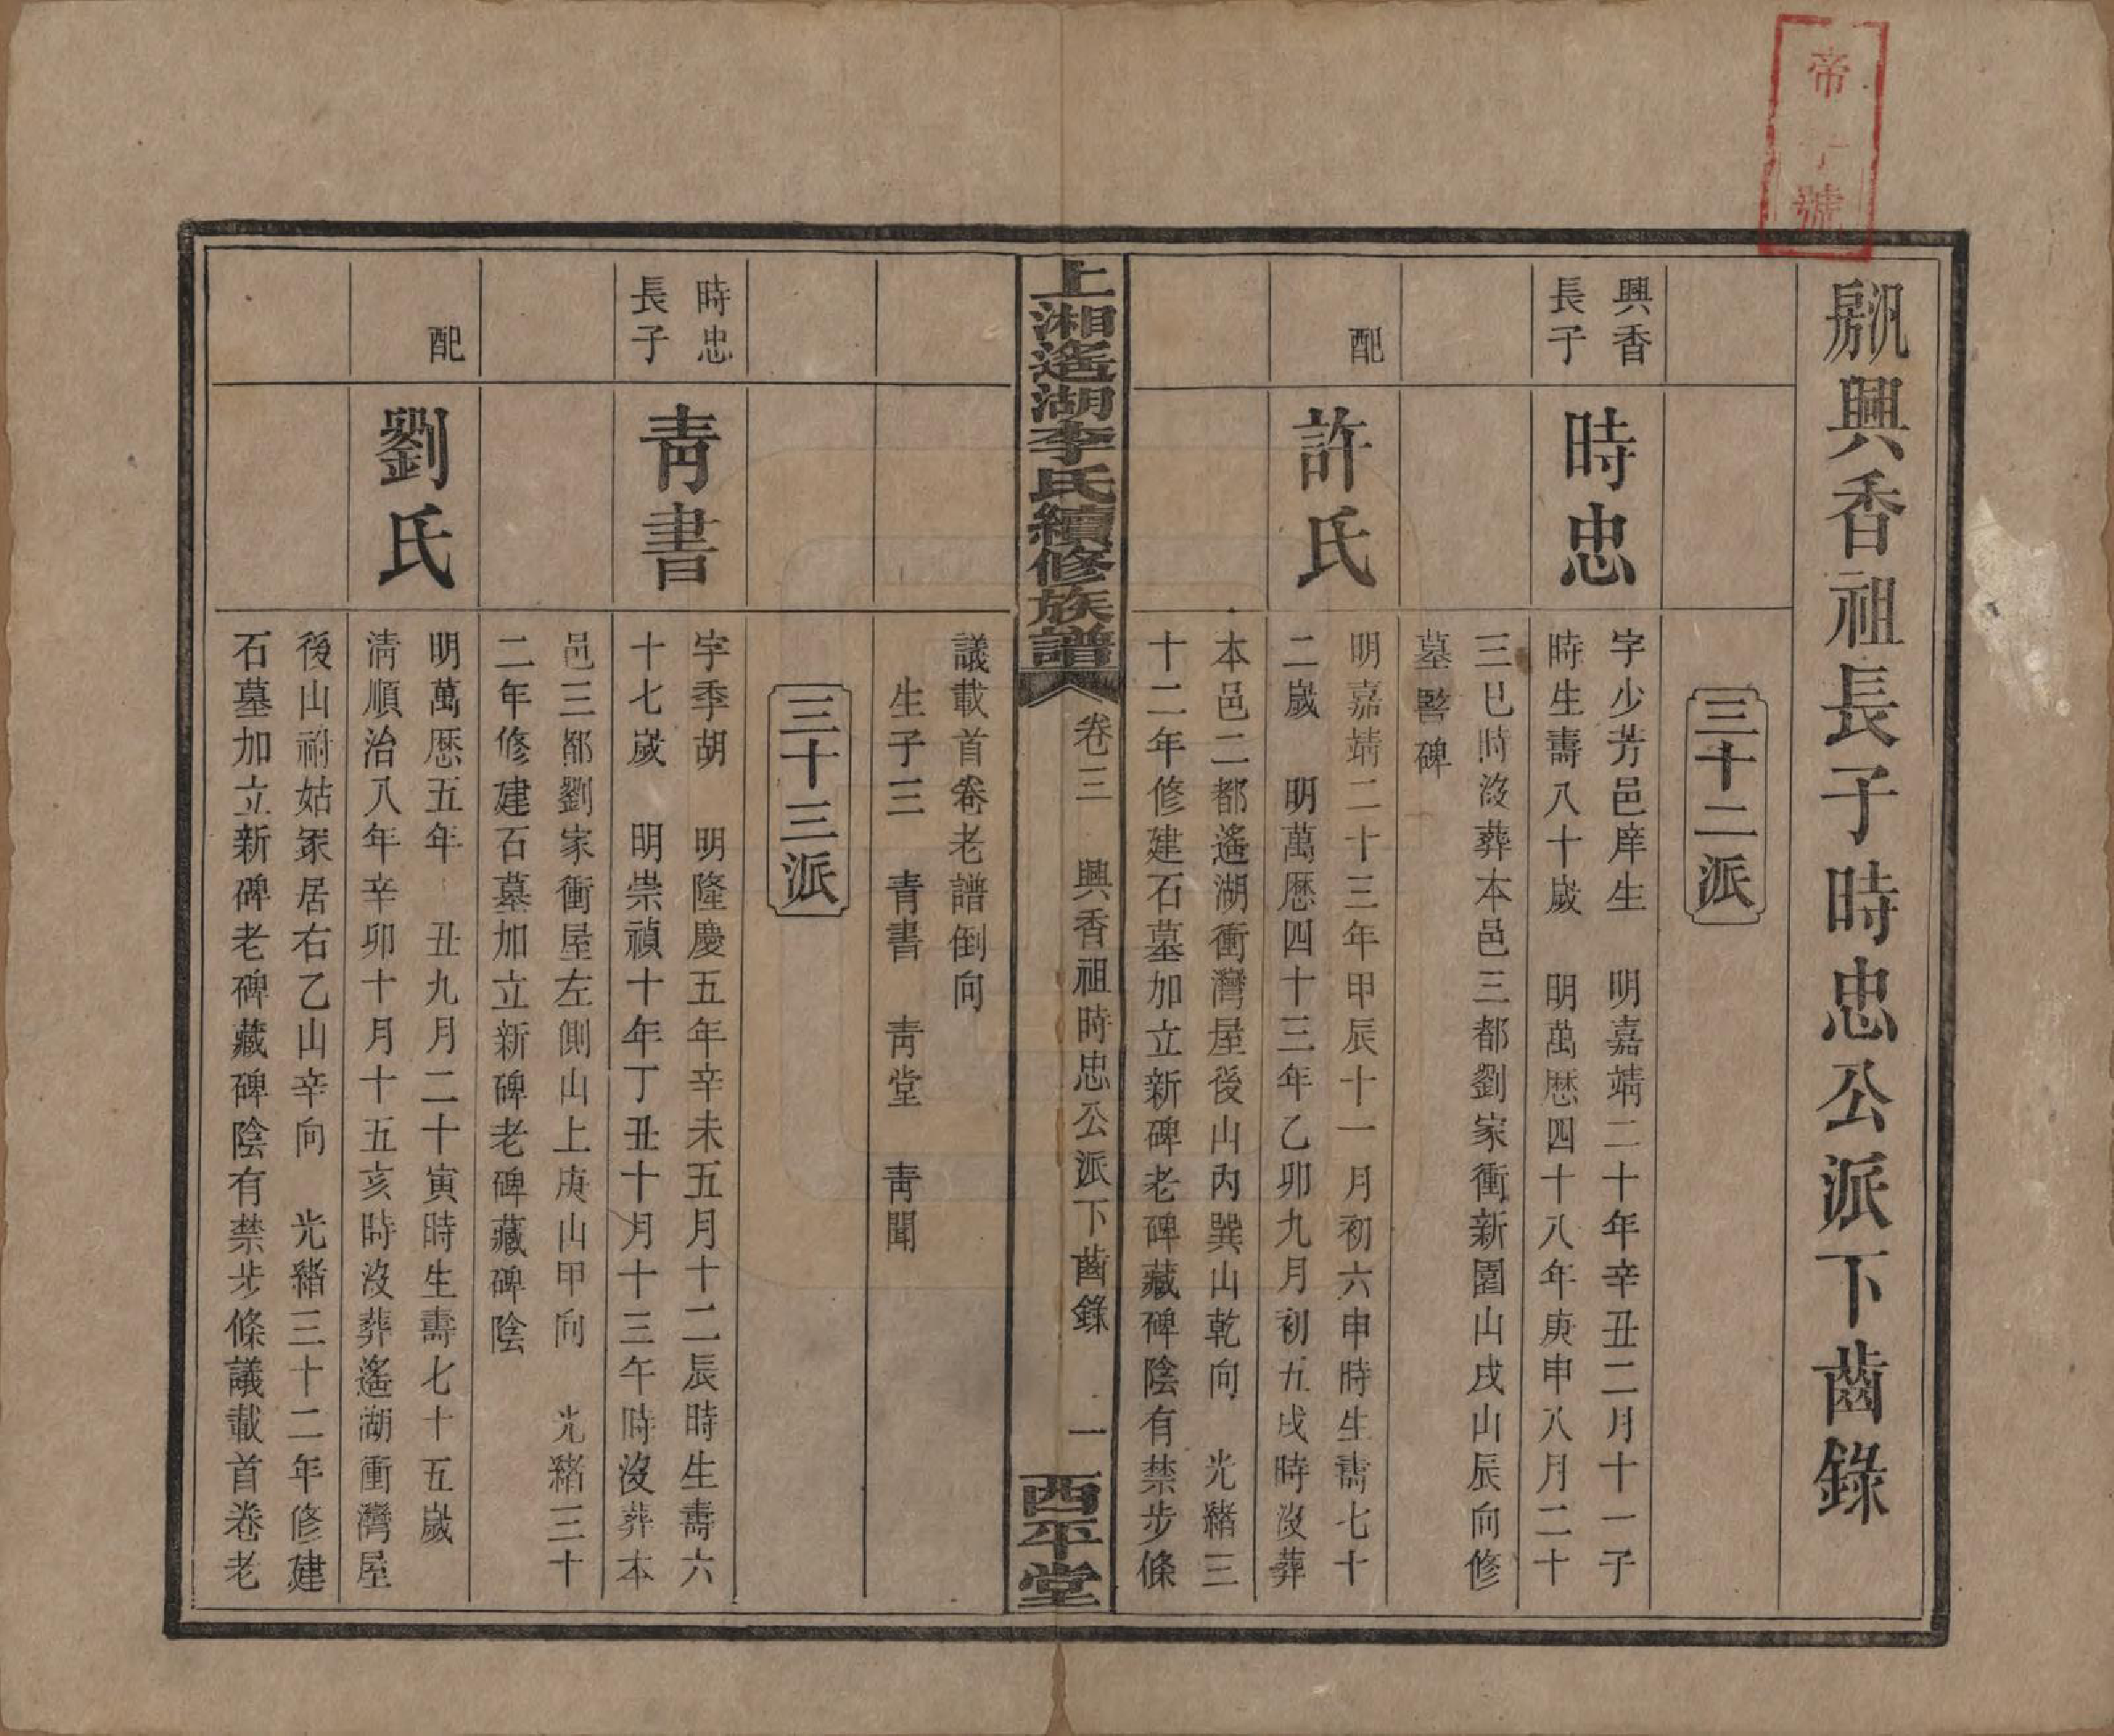 帝
號
房興香祖長子時忠公派下齒錄
三十二派
興香
長子
時忠
字少芳邑庠生　明嘉靖二十年辛丑二月十一子
時生壽八十歲　明萬歷四十八年庚申八月二十
三巳時沒葬本邑三都劉家衝新園山戌山辰向修
墓竪碑
配
許氏
明嘉靖二十三年甲辰十一月初六申時生壽七十
二歲　明萬歷四十三年乙卯九月初五戌時沒葬
本邑二都遙湖衝灣屋後山內巽山乾向　光緒三
十二年修建石墓加立新碑老碑藏碑陰有禁步條
上湘遙湖李氏續修族譜
卷三　興香祖時忠公派下齒錄
一
西平堂
議載首卷老譜倒向
生子三　青書　青堂　青聞
三十三派
時忠
長子
青書
字季胡　明隆慶五年辛未五月十二辰時生壽六
十七歲　明崇禎十年丁丑十月十三午時沒葬本
邑三都劉家衝屋左側山上庚山甲向　光緒三十
二年修建石墓加立新碑老碑藏碑陰
配
劉氏
明萬歷五年　丑九月二十寅時生壽七十五歲
清順治八年辛卯十月十五亥時沒葬遙湖衝灣屋
後山祔姑冢居右乙山辛向　光緒三十二年修建
石墓加立新碑老碑藏碑陰有禁步條議載首卷老